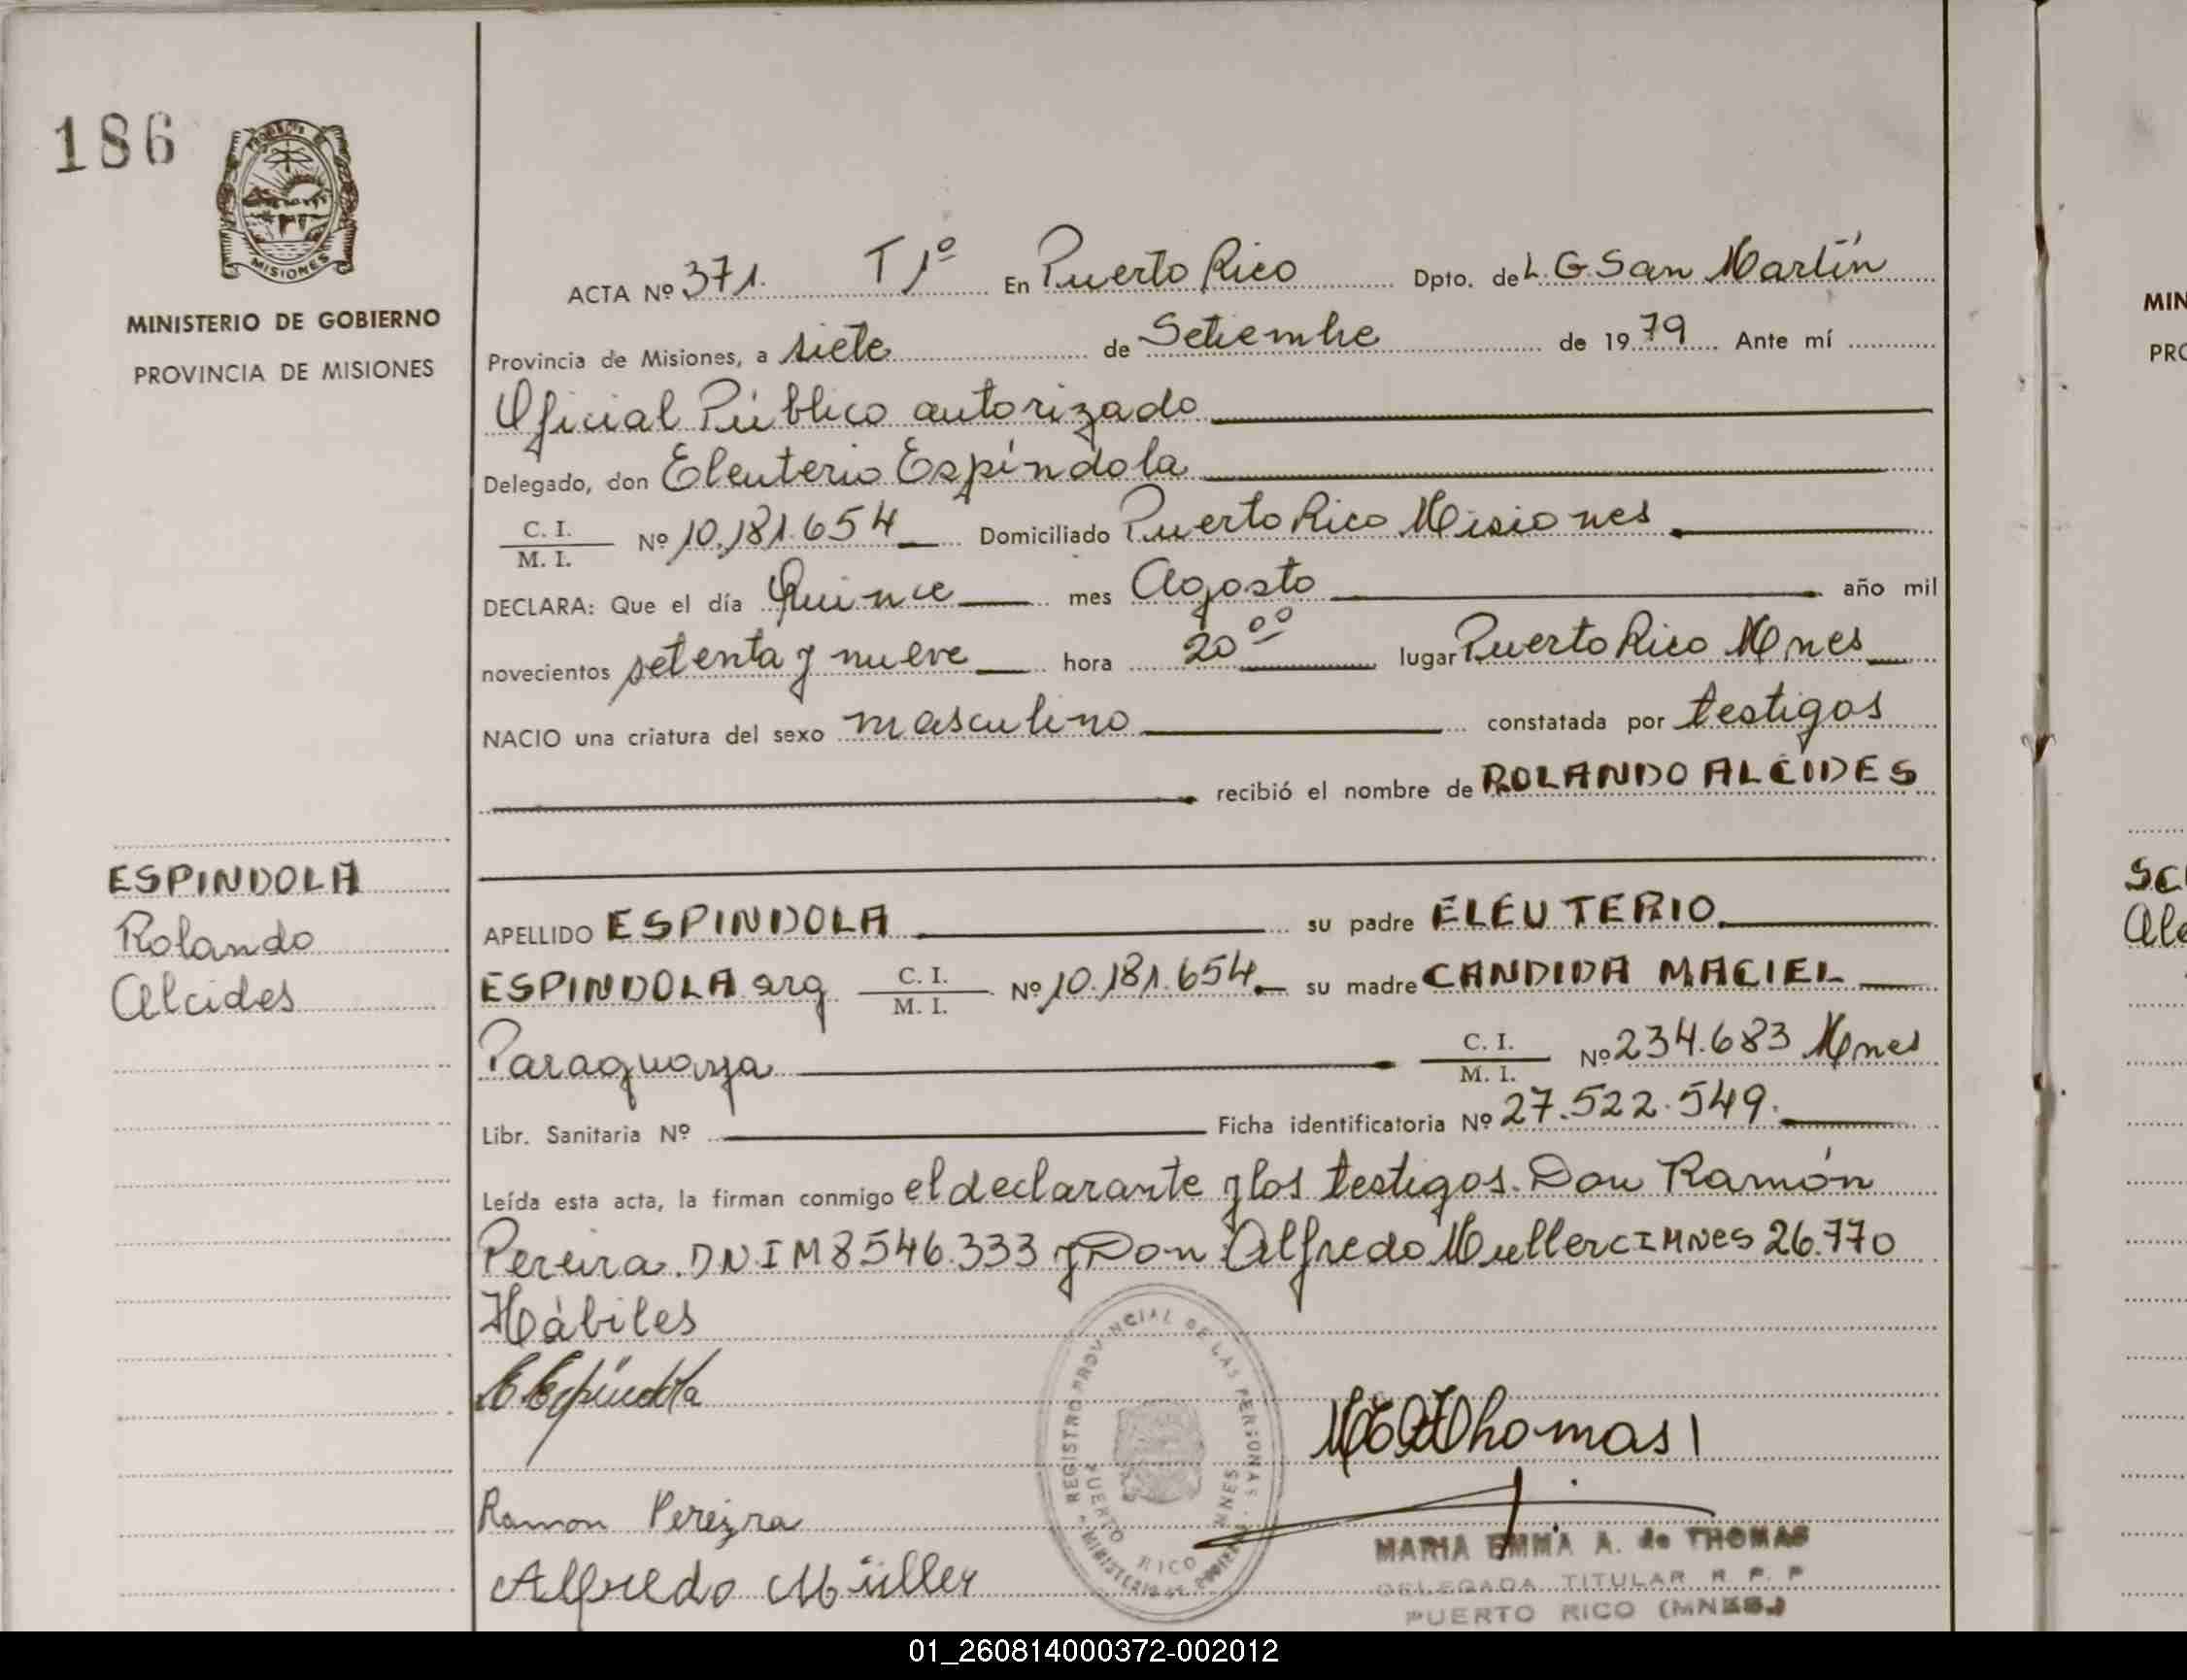 186
PROVINCIA DE
MISIONES
MINISTERIO DE GOBIERNO
PROVINCIA DE MISIONES
ESPINDOLA
Rolando
Alcides
ACTA Nº 371. T 1º En Puerto Rico Dpto. de L. G. San Martín
Provincia de Misiones, a siete de Setiembre de 1979 Ante mí
Oficial Público autorizado
Delegado, don Eleuterio Espíndola
C. I.
M. I. Nº 10.181.654 Domiciliado Puerto Rico Misiones
DECLARA: Que el día Quince mes Agosto año mil
novecientos setenta y nueve hora 20 00 lugar Puerto Rico Mnes
NACIO una criatura del sexo masculino constatada por testigos
recibió el nombre de ROLANDO ALCIDES
APELLIDO ESPINDOLA su padre ELEUTERIO
ESPINDOLA arg C. I.
M. I. Nº 10.181.654 su madre CANDIDA MACIEL
Paraguaya C. I.
M. I. Nº 234.683 Mnes
Libr. Sanitaria Nº Ficha identificatoria Nº 27.522.549.
Leída esta acta, la firman conmigo el declarante y los testigos. Don Ramón
Pereira. DNI M 8546.333 y Don Alfredo Muller CI MNES 26.770
Hábiles
E Espíndola
Thomas
Ramon Pereyra
Alfredo Müller
REGISTRO PROVINCIAL DE LAS PERSONAS
MINISTERIO DE GOBIERNO
PUERTO RICO MNES
MARIA EMMA A. de THOMAS
DELEGADA TITULAR R. P. P
PUERTO RICO (MNES.)
MIN
PRO
SC
Ale
01_260814000372-002012